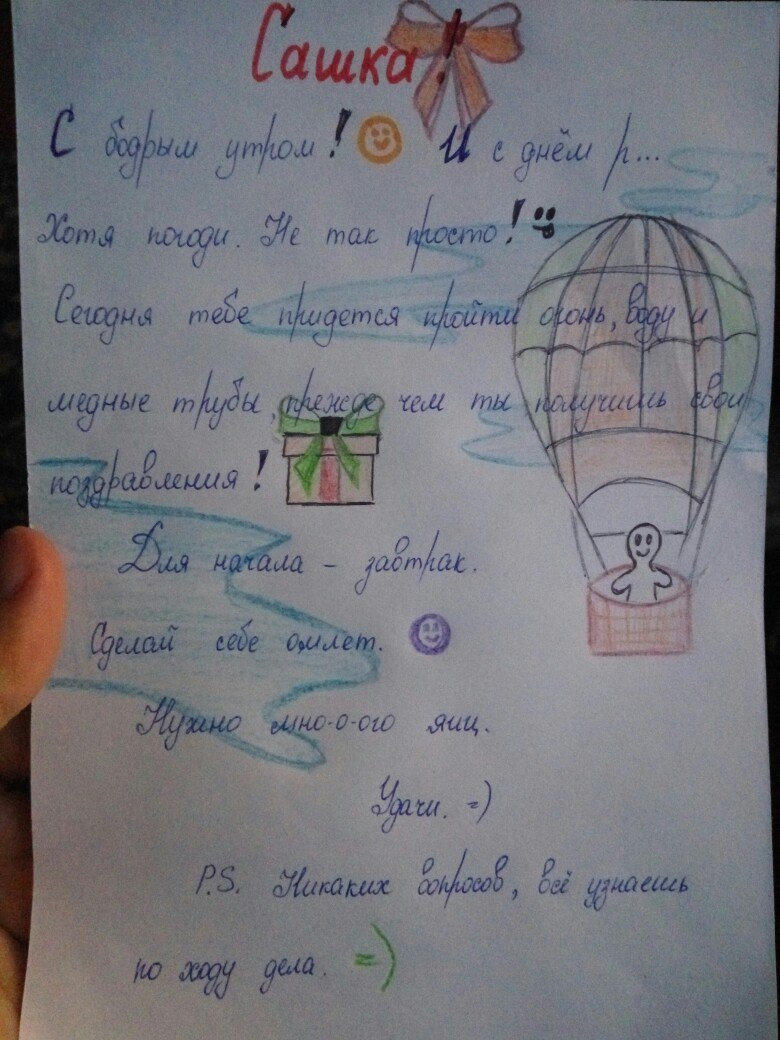 Сашка!
С бодрым утром! И с днём р...
Хотя погоди. Не так просто!
Сегодня тебе придется пройти огонь, воду и
медные трубы, прежде чем ты получишь свои
поздравления!
Для начала – завтрак.
Сделай себе омлет.
Нужно мно-о-ого яиц.
Удачи. =)
P.S. Никаких вопросов, всё узнаешь
по ходу дела. =)